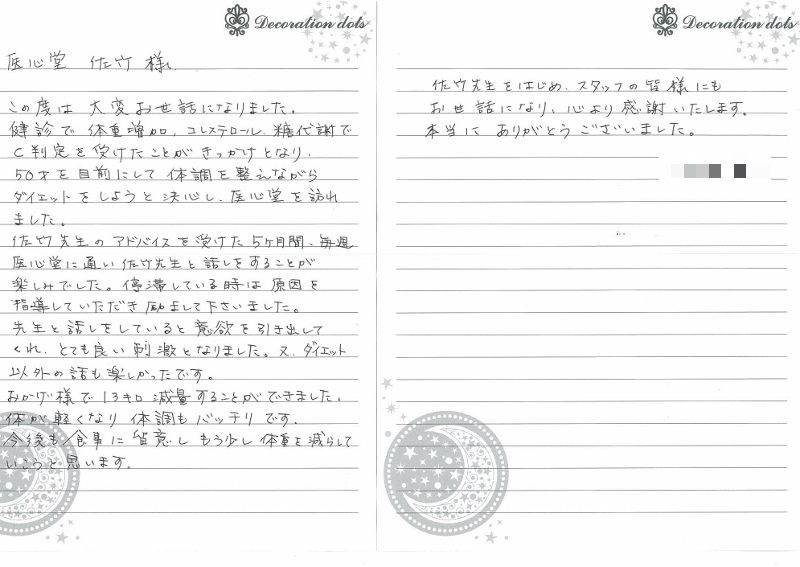 Decoration dots
医心堂 佐竹 様
この度は 大変 お世話になりました。
健診で 体重増加、コレステロール、糖代謝で
C判定を受けたことが きっかけとなり、
50才を目前にして 体調を整えながら
ダイエットをしようと 決心し、医心堂を訪れ
ました。
佐竹先生の アドバイスを受けた 5ヶ月間、毎週
医心堂に通い 佐竹先生と 話しをすることが
楽しみでした。停滞している時は 原因を
指導していただき 励まして下さいました。
先生と 話しをしていると 意欲を引き出して
くれ、とても良い 刺激となりました。又、ダイエット
以外の話も楽しかったです。
おかげ様で 13キロ 減量することができました。
体が 軽くなり 体調も バッチリです。
今後も 食事に 留意し もう少し 体重を減らして
いこうと思います。
Decoration dots
佐竹先生をはじめ、スタッフの皆様にも
お世話になり、心より感謝いたします。
本当に ありがとう ございました。